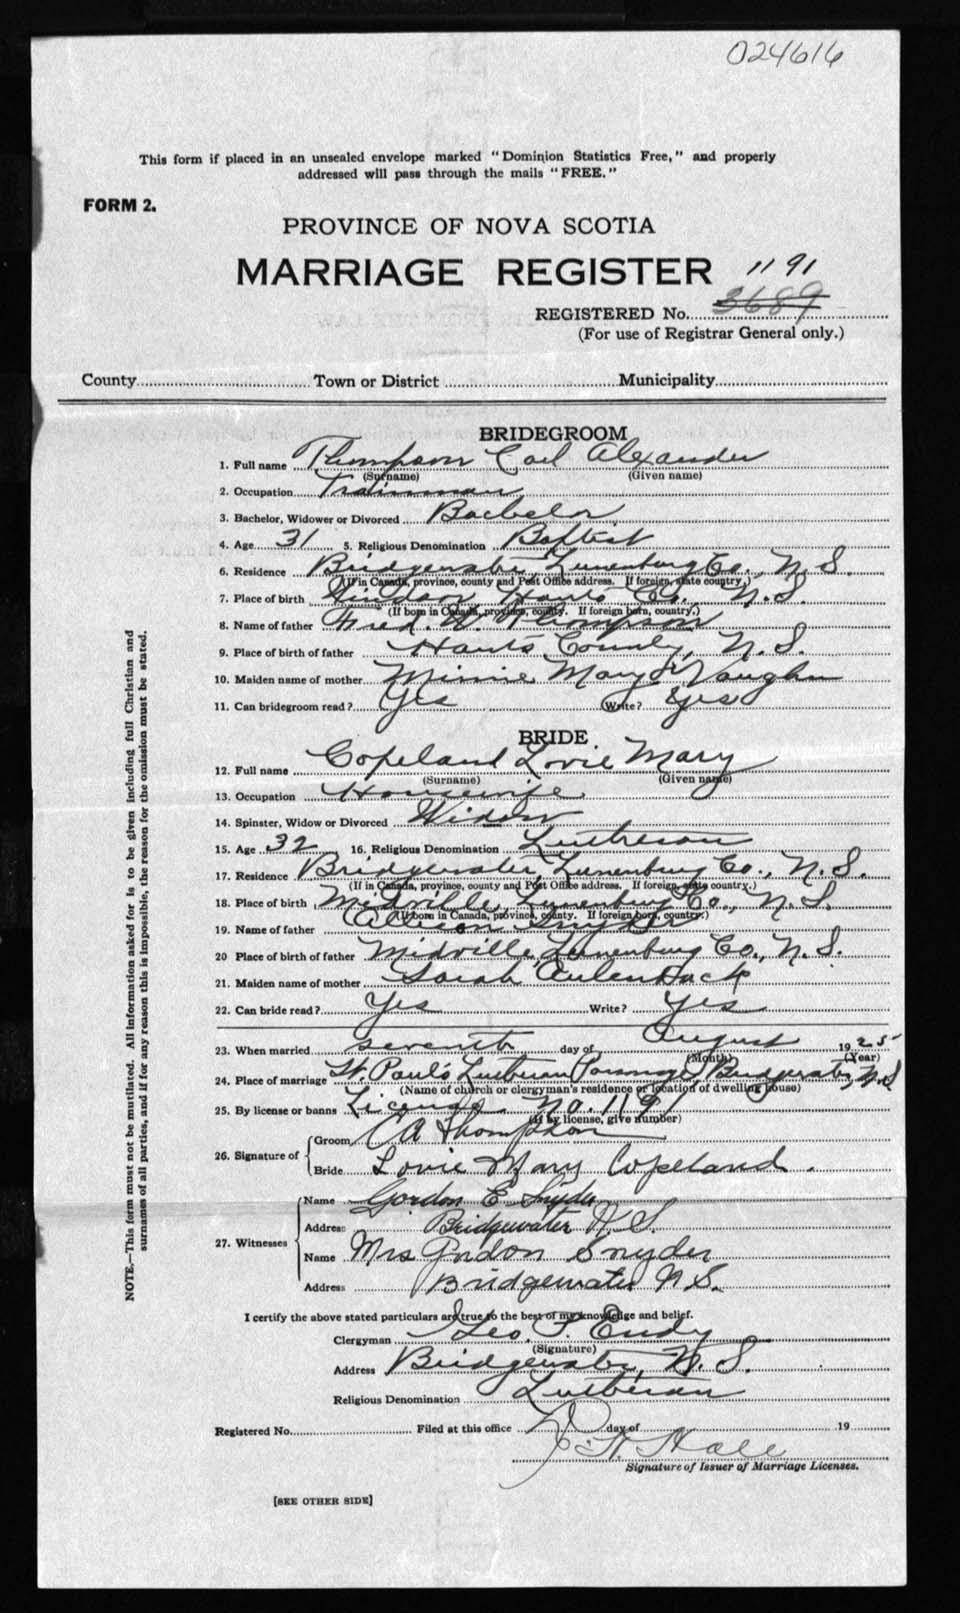 024616
This form if placed in an unsealed envelope marked "Dominion Statistics Free," and properly
addressed will pass through the mails "FREE."
FORM 2.
PROVINCE OF NOVA SCOTIA
MARRIAGE REGISTER 1191
REGISTERED No. 3689
(For use of Registrar General only.)
County Town or District Municipality
BRIDEGROOM
1. Full name Thompson Carl Alexander
(Surname) (Given name)
2. Occupation Trainman
3. Bachelor, Widower or Divorced Bachelor
4. Age 31 5. Religious Denomination Baptist
6. Residence Bridgewater, Lunenburg Co., N.S.
(If in Canada, province, county and Post Office address. If foreign, state country.)
7. Place of birth Windsor Hants Co., N.S.
(If born in Canada, province, county. If foreign born, country.)
8. Name of father Fred. W. Thompson
9. Place of birth of father Hants County, N.S.
10. Maiden name of mother Minnie Mary Vaughn
11. Can bridegroom read? Yes Write? Yes
BRIDE
12. Full name Copeland Lovie Mary
(Surname) (Given name)
13. Occupation Housewife
14. Spinster, Widow or Divorced Widow
15. Age 32 16. Religious Denomination Lutheran
17. Residence Bridgewater, Lunenburg Co., N.S.
(If in Canada, province, county and Post Office address. If foreign, state country.)
18. Place of birth Midville Lunenburg Co., N.S.
(If born in Canada, province, county. If foreign born, country.)
19. Name of father Allison Snyder
20 Place of birth of father Midville, Lunenburg Co., N.S.
21. Maiden name of mother Sarah Aulenback
22. Can bride read? Yes Write? Yes
23. When married seventh day of August 1925
(Month) (Year)
24. Place of marriage St. Paul's Lutheran Parsonage, Bridgewater, N.S.
(Name of church or clergyman's residence or location of dwelling house)
25. By license or banns License No. 1191
(If by license, give number)
26. Signature of Groom C A Thompson
Bride Lovie Mary Copeland.
27. Witnesses Name Gordon E Snyder
Address Bridgewater N.S.
Name Mrs Gordon Snyder
Address Bridgewater N.S.
I certify the above stated particulars are true to the best of my knowledge and belief.
Clergyman Geo. P. Endy
(Signature)
Address Bridgewater, N.S.
Religious Denomination Lutheran
Registered No. Filed at this office day of 19
Hall
Signature of Issuer of Marriage Licenses.
[SEE OTHER SIDE]
NOTE.—This form must not be mutilated. All information asked for is to be given including full Christian and
surnames of all parties, and if for any reason this is impossible, the reason for the omission must be stated.